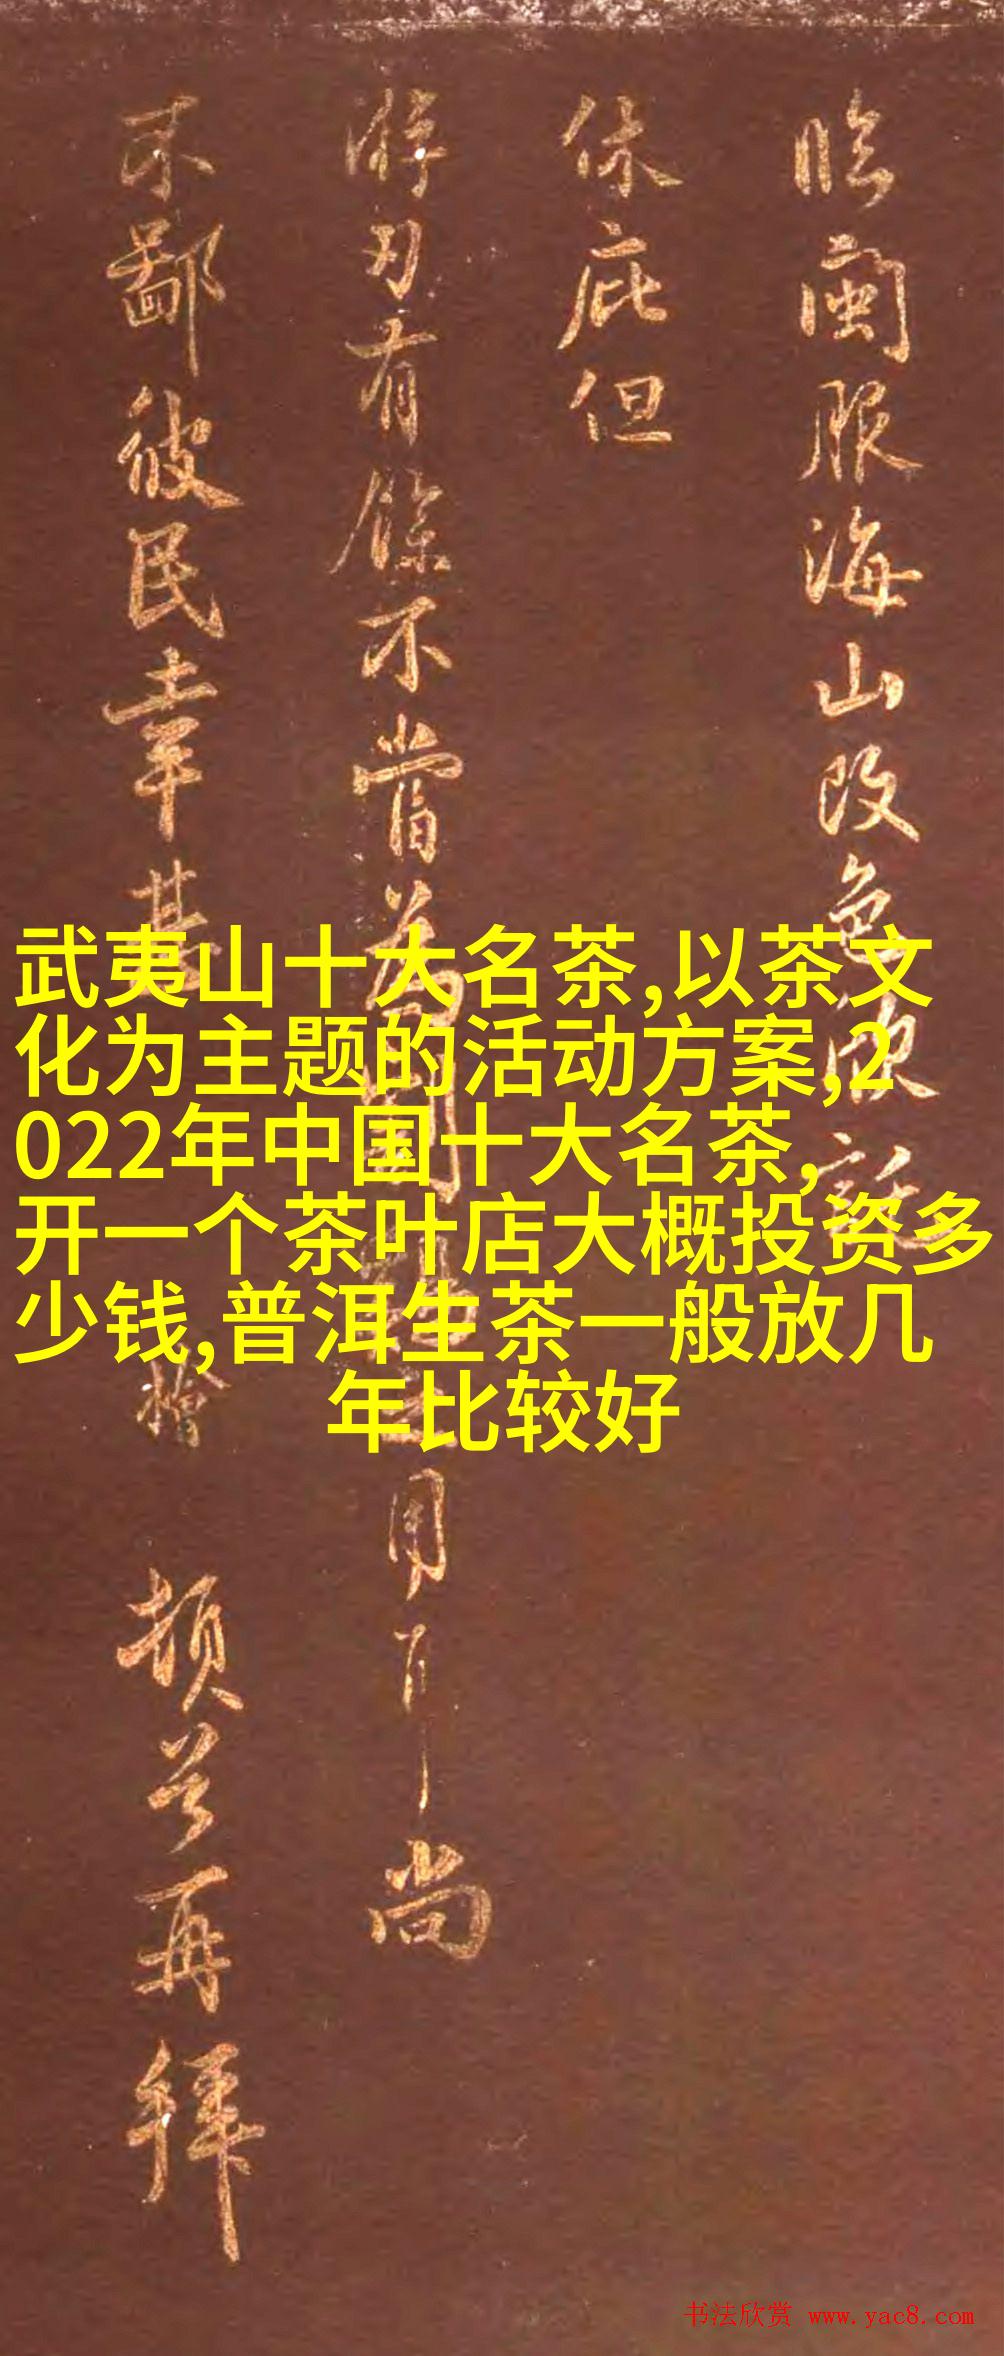 臨閩服海山改色
休庇但
游刃有餘不嘗為
用
尚
不鄙彼民幸甚
頓首再拜
武夷山十大名茶,以茶文
化为主题的活动方案,2
022年中国十大名茶,
开一个茶叶店大概投资多
少钱,普洱生茶一般放几
年比较好
书法欣赏 www.yac8.com